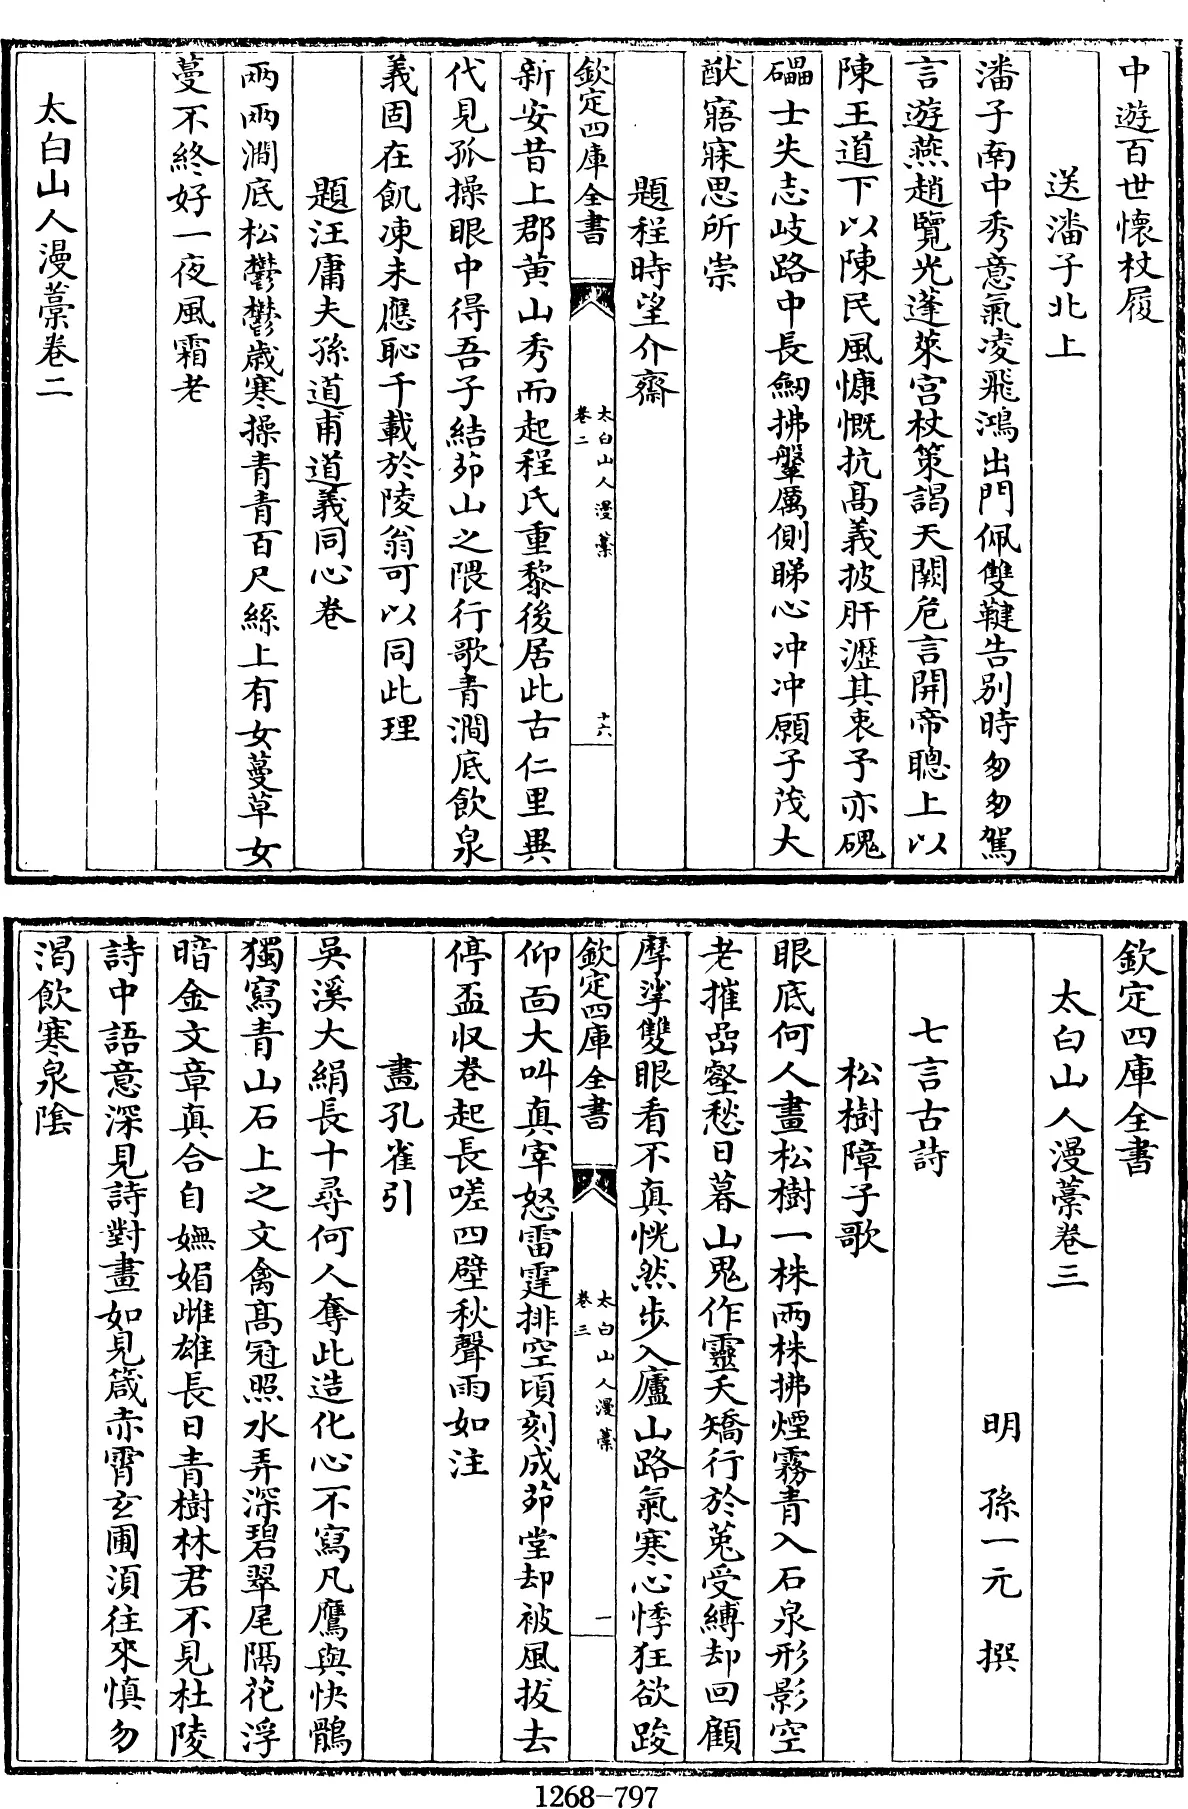 中遊百世懷杖履
送潘子北上
潘子南中秀意氣凌飛鴻出門佩雙鞬告別時匆匆駕
言遊燕趙覽光蓬萊宫杖策謁天闕危言開帝聰上以
陳王道下以陳民風慷慨抗髙義披肝瀝其衷予亦磈
礧士失志岐路中長劒拂鞶厲側睇心冲冲願子茂大
猷寤寐思所崇
題程時望介齋
欽定四庫全書
太白山人漫藁
卷二
十六
新安昔上郡黄山秀而起程氏重黎後居此古仁里異
代見孤操眼中得吾子結茆山之隈行歌青澗底飲泉
義固在飢凍未應恥千載於陵翁可以同此理
題汪庸夫孫道甫道義同心卷
兩兩澗底松鬱鬱歳寒操青青百尺絲上有女蔓草女
蔓不終好一夜風霜老
太白山人漫藁卷二
欽定四庫全書
太白山人漫藁卷三
明 孫一元 撰
七言古詩
松樹障子歌
眼底何人畫松樹一株兩株拂煙霧青入石泉形影空
老摧嵒壑愁日暮山鬼作靈夭矯行於菟受縛却回顧
摩挲雙眼看不真恍然步入廬山路氣寒心悸狂欲踆
欽定四庫全書
太白山人漫藁
卷三
一
仰面大叫真宰怒雷霆排空頃刻成茆堂却被風拔去
停盃收卷起長嗟四壁秋聲雨如注
畫孔雀引
吳溪大絹長十尋何人奪此造化心不寫凡鷹與快鶻
獨寫青山石上之文禽髙冠照水弄深碧翠尾隔花浮
暗金文章真合自嫵媚雌雄長日青樹林君不見杜陵
詩中語意深見詩對畫如見箴赤霄玄圃湏往來慎勿
渴飲寒泉陰
1268-797